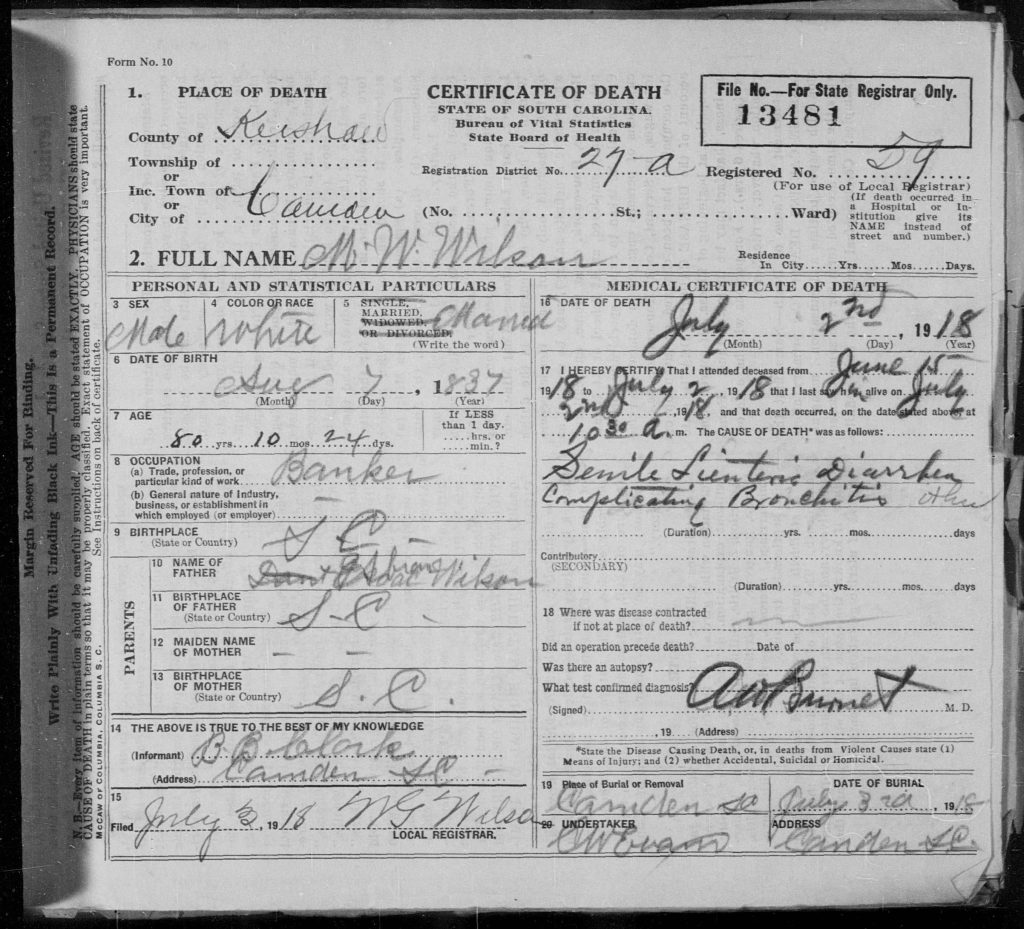 Form No. 10
1. PLACE OF DEATH
County of Kershaw
Township of
or
Inc. Town of
or
City of Camden
CERTIFICATE OF DEATH
STATE OF SOUTH CAROLINA.
Bureau of Vital Statistics
State Board of Health
File No.—For State Registrar Only.
13481
Registration District No. 27-a Registered No. 59
(For use of Local Registrar)
(No. St.; Ward)
(If death occurred in
a Hospital or In-
stitution give its
NAME instead of
street and number.)
2. FULL NAME M. W. Wilson
Residence
In City Yrs. Mos. Days.
PERSONAL AND STATISTICAL PARTICULARS
3 SEX
Male
4 COLOR OR RACE
White
5 SINGLE,
MARRIED,
WIDOWED,
OR DIVORCED,
Married
(Write the word)
6 DATE OF BIRTH
Aug 7, 1837
(Month) (Day) (Year)
7 AGE
80 yrs. 10 mos. 24 dys.
If LESS
than 1 day.
hrs. or
min.?
8 OCCUPATION
(a) Trade, profession, or
particular kind of work Banker
(b) General nature of Industry,
business, or establishment in
which employed (or employer)
9 BIRTHPLACE
(State or Country) S C
PARENTS
10 NAME OF
FATHER Isaac Wilson
11 BIRTHPLACE
OF FATHER
(State or Country) S. C.
12 MAIDEN NAME
OF MOTHER — —
13 BIRTHPLACE
OF MOTHER
(State or Country) S. C.
14 THE ABOVE IS TRUE TO THE BEST OF MY KNOWLEDGE
(Informant) B. B. Clark
(Address) Camden S.C.
15
Filed July 3, 1918 W G Wilson
LOCAL REGISTRAR.
MEDICAL CERTIFICATE OF DEATH
16 DATE OF DEATH
July 2nd, 1918
(Month) (Day) (Year)
17 I HEREBY CERTIFY That I attended deceased from June 15
1918 to July 2, 1918 that I last saw him alive on July
2nd, 1918, and that death occurred, on the date stated above at
10 30 a. m. The CAUSE OF DEATH* was as follows:
Senile Lienteric Diarrhea
Complicating Bronchitis
(Duration) yrs. mos. days
Contributory
(SECONDARY)
(Duration) yrs. mos. days
18 Where was disease contracted
if not at place of death?
Did an operation precede death? Date of
Was there an autopsy?
What test confirmed diagnosis?
(Signed) A W Burnet M. D.
, 19 (Address)
*State the Disease Causing Death, or, in deaths from Violent Causes state (1)
Means of Injury; and (2) whether Accidental, Suicidal or Homicidal.
19 Place of Burial or Removal
Camden SC
DATE OF BURIAL
July 3rd, 1918
20 UNDERTAKER
C W Evans
ADDRESS
Camden S.C.
Margin Reserved For Binding.
Write Plainly With Unfading Black Ink—This is a Permanent Record.
N. B.—Every item of information should be carefully supplied. AGE should be stated EXACTLY. PHYSICIANS should state
CAUSE OF DEATH in plain terms so that it may be properly classified. Exact statement of OCCUPATION is very important.
See Instructions on back of certificate.
McCAW OF COLUMBIA, COLUMBIA S. C.